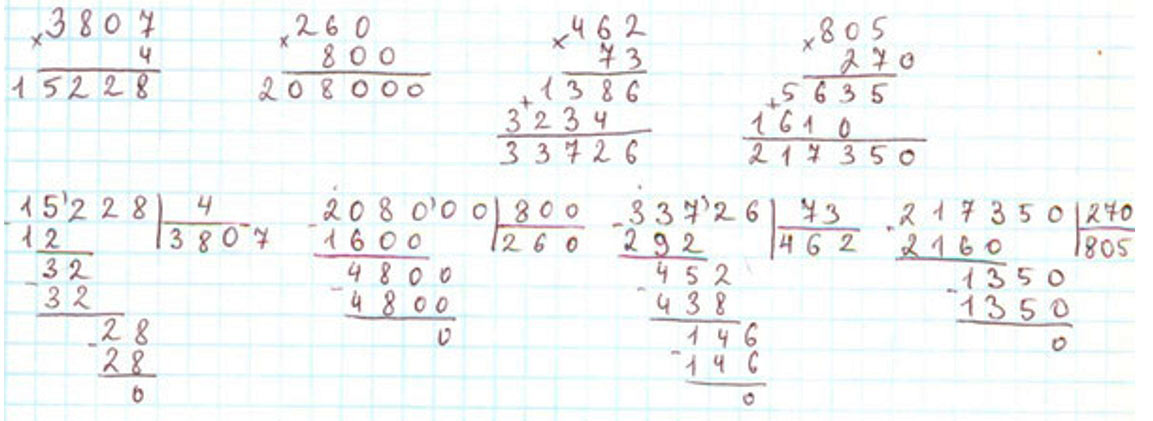 ×3807 ×260 ×462 ×805
4 800 73 270
15228 208000 1386 5635
+3234 +1610
33726 217350
-15'228|4 -2080'00|800 -337'26|73 -217350|270
12 3807 1600 260 292 462 2160 805
-32 -4800 -452 -1350
32 4800 438 1350
-28 0 -146 0
28 146
0 0